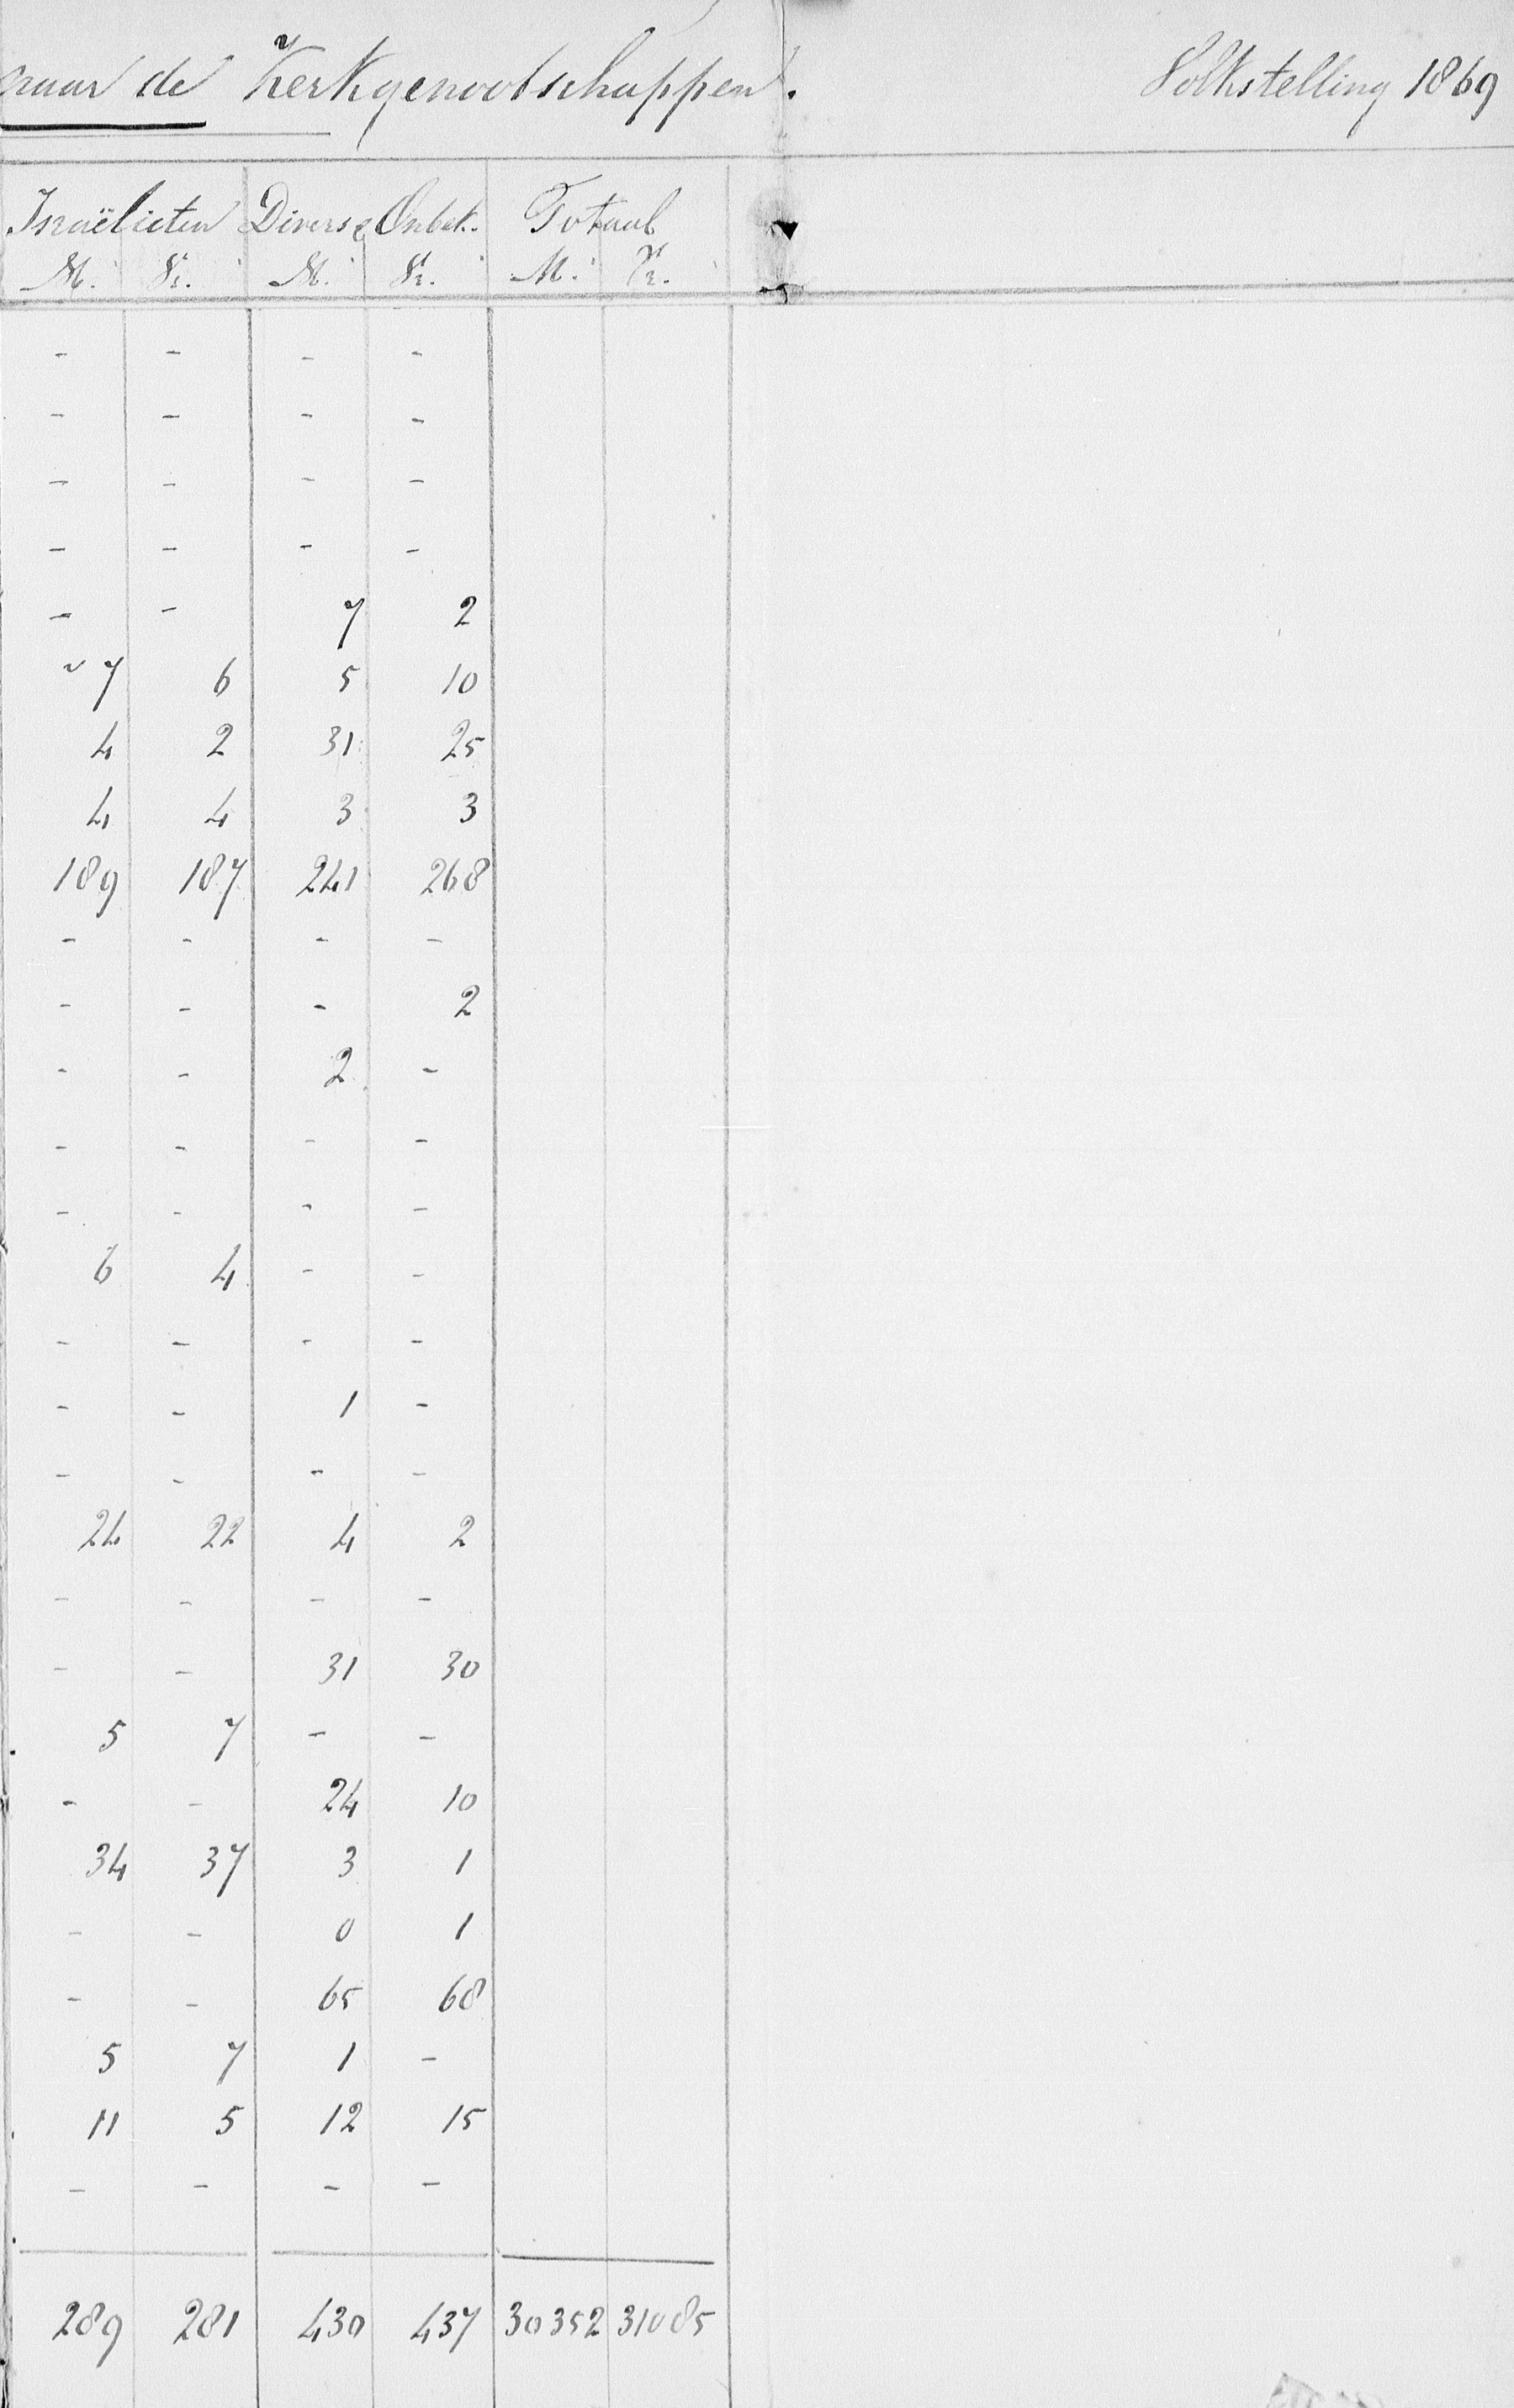 naar de Kerkgenootschappen. Volkstelling 1869
Israëlieten Diverse Onbek. Totaal
M. Vr. M. Vr. M. Vr.
- - - -
- - - -
- - - -
- - - -
- - 7 2
7 6 5 10
4 2 31 25
4 4 3 3
189 187 241 268
- - - -
- - - 2
- - 2 -
- - - -
- - - -
6 4 - -
- - - -
- - 1 -
- - - -
24 22 4 2
- - - -
- - 31 30
5 7 - -
- - 24 10
34 37 3 1
- - 0 1
- - 65 68
5 7 1 -
11 5 12 15
- - - -
289 281 430 437 30352 31085